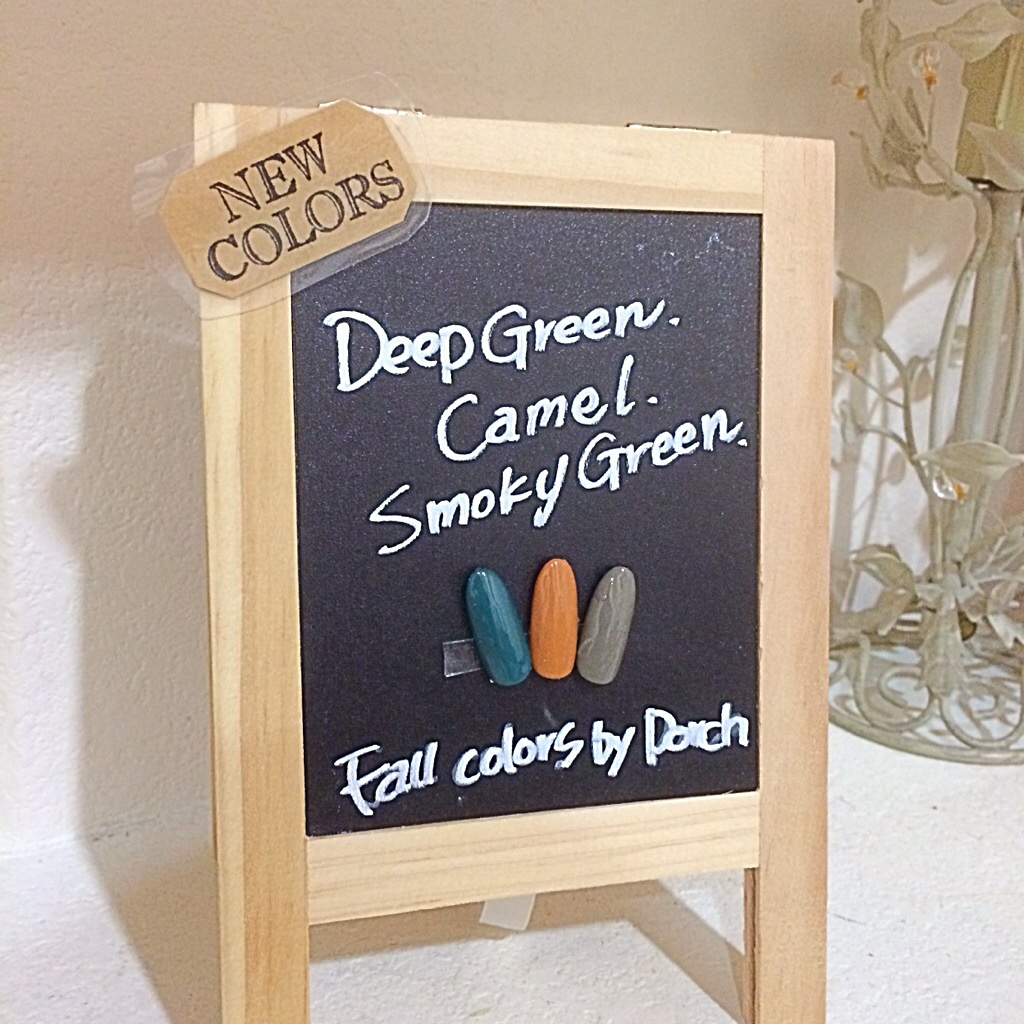 NEW
COLORS
Deep Green.
Camel.
Smoky Green.
Fall colors by Porch